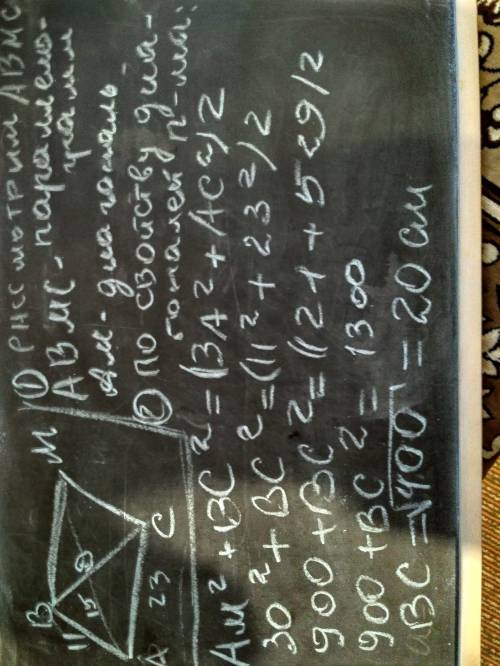 ① Рассмотрим АВМС
АВМС - паралело-
грамм
АМ - диагональ
② По свойству диа-
гоналей п-ма:
АМ² + ВС² = (ВА² + АС²) 2
30² + ВС² = (11² + 23²) 2
900 + ВС² = (121 + 529) 2
900 + ВС² = 1300
ВС = √400 = 20 см
В
М
11
15
А
23
С